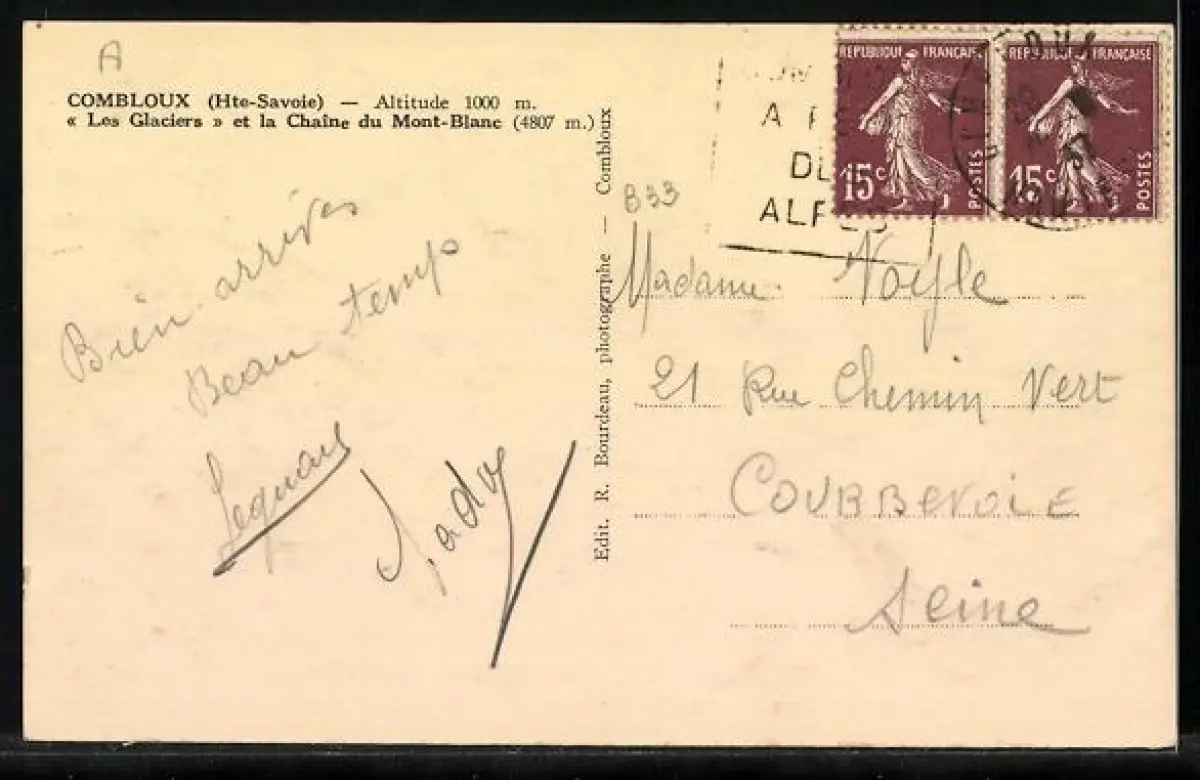 A
COMBLOUX (Hte-Savoie) — Altitude 1000 m.
« Les Glaciers » et la Chaîne du Mont-Blanc (4807 m.)
Bien arrivés
Beau temps
Edit. R. Bourdeau, photographe — Combloux
B33
A
ALP
REPUBLIQUE FRANÇAISE
15c
POSTES
REPUBLIQUE FRANÇAISE
15c
POSTES
Madame
21 Rue Chemin Vert
COURBEVOIE
Seine